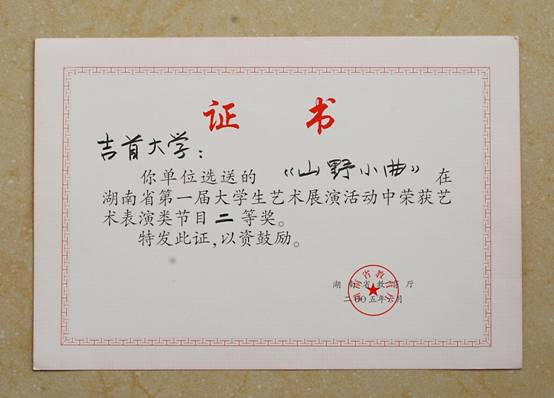 证书
吉首大学：
你单位选送的 《山野小曲》 在
湖南省第一届大学生艺术展演活动中荣获艺
术表演类节目二等奖。
特发此证，以资鼓励。
湖南省教育厅
二00五年六月